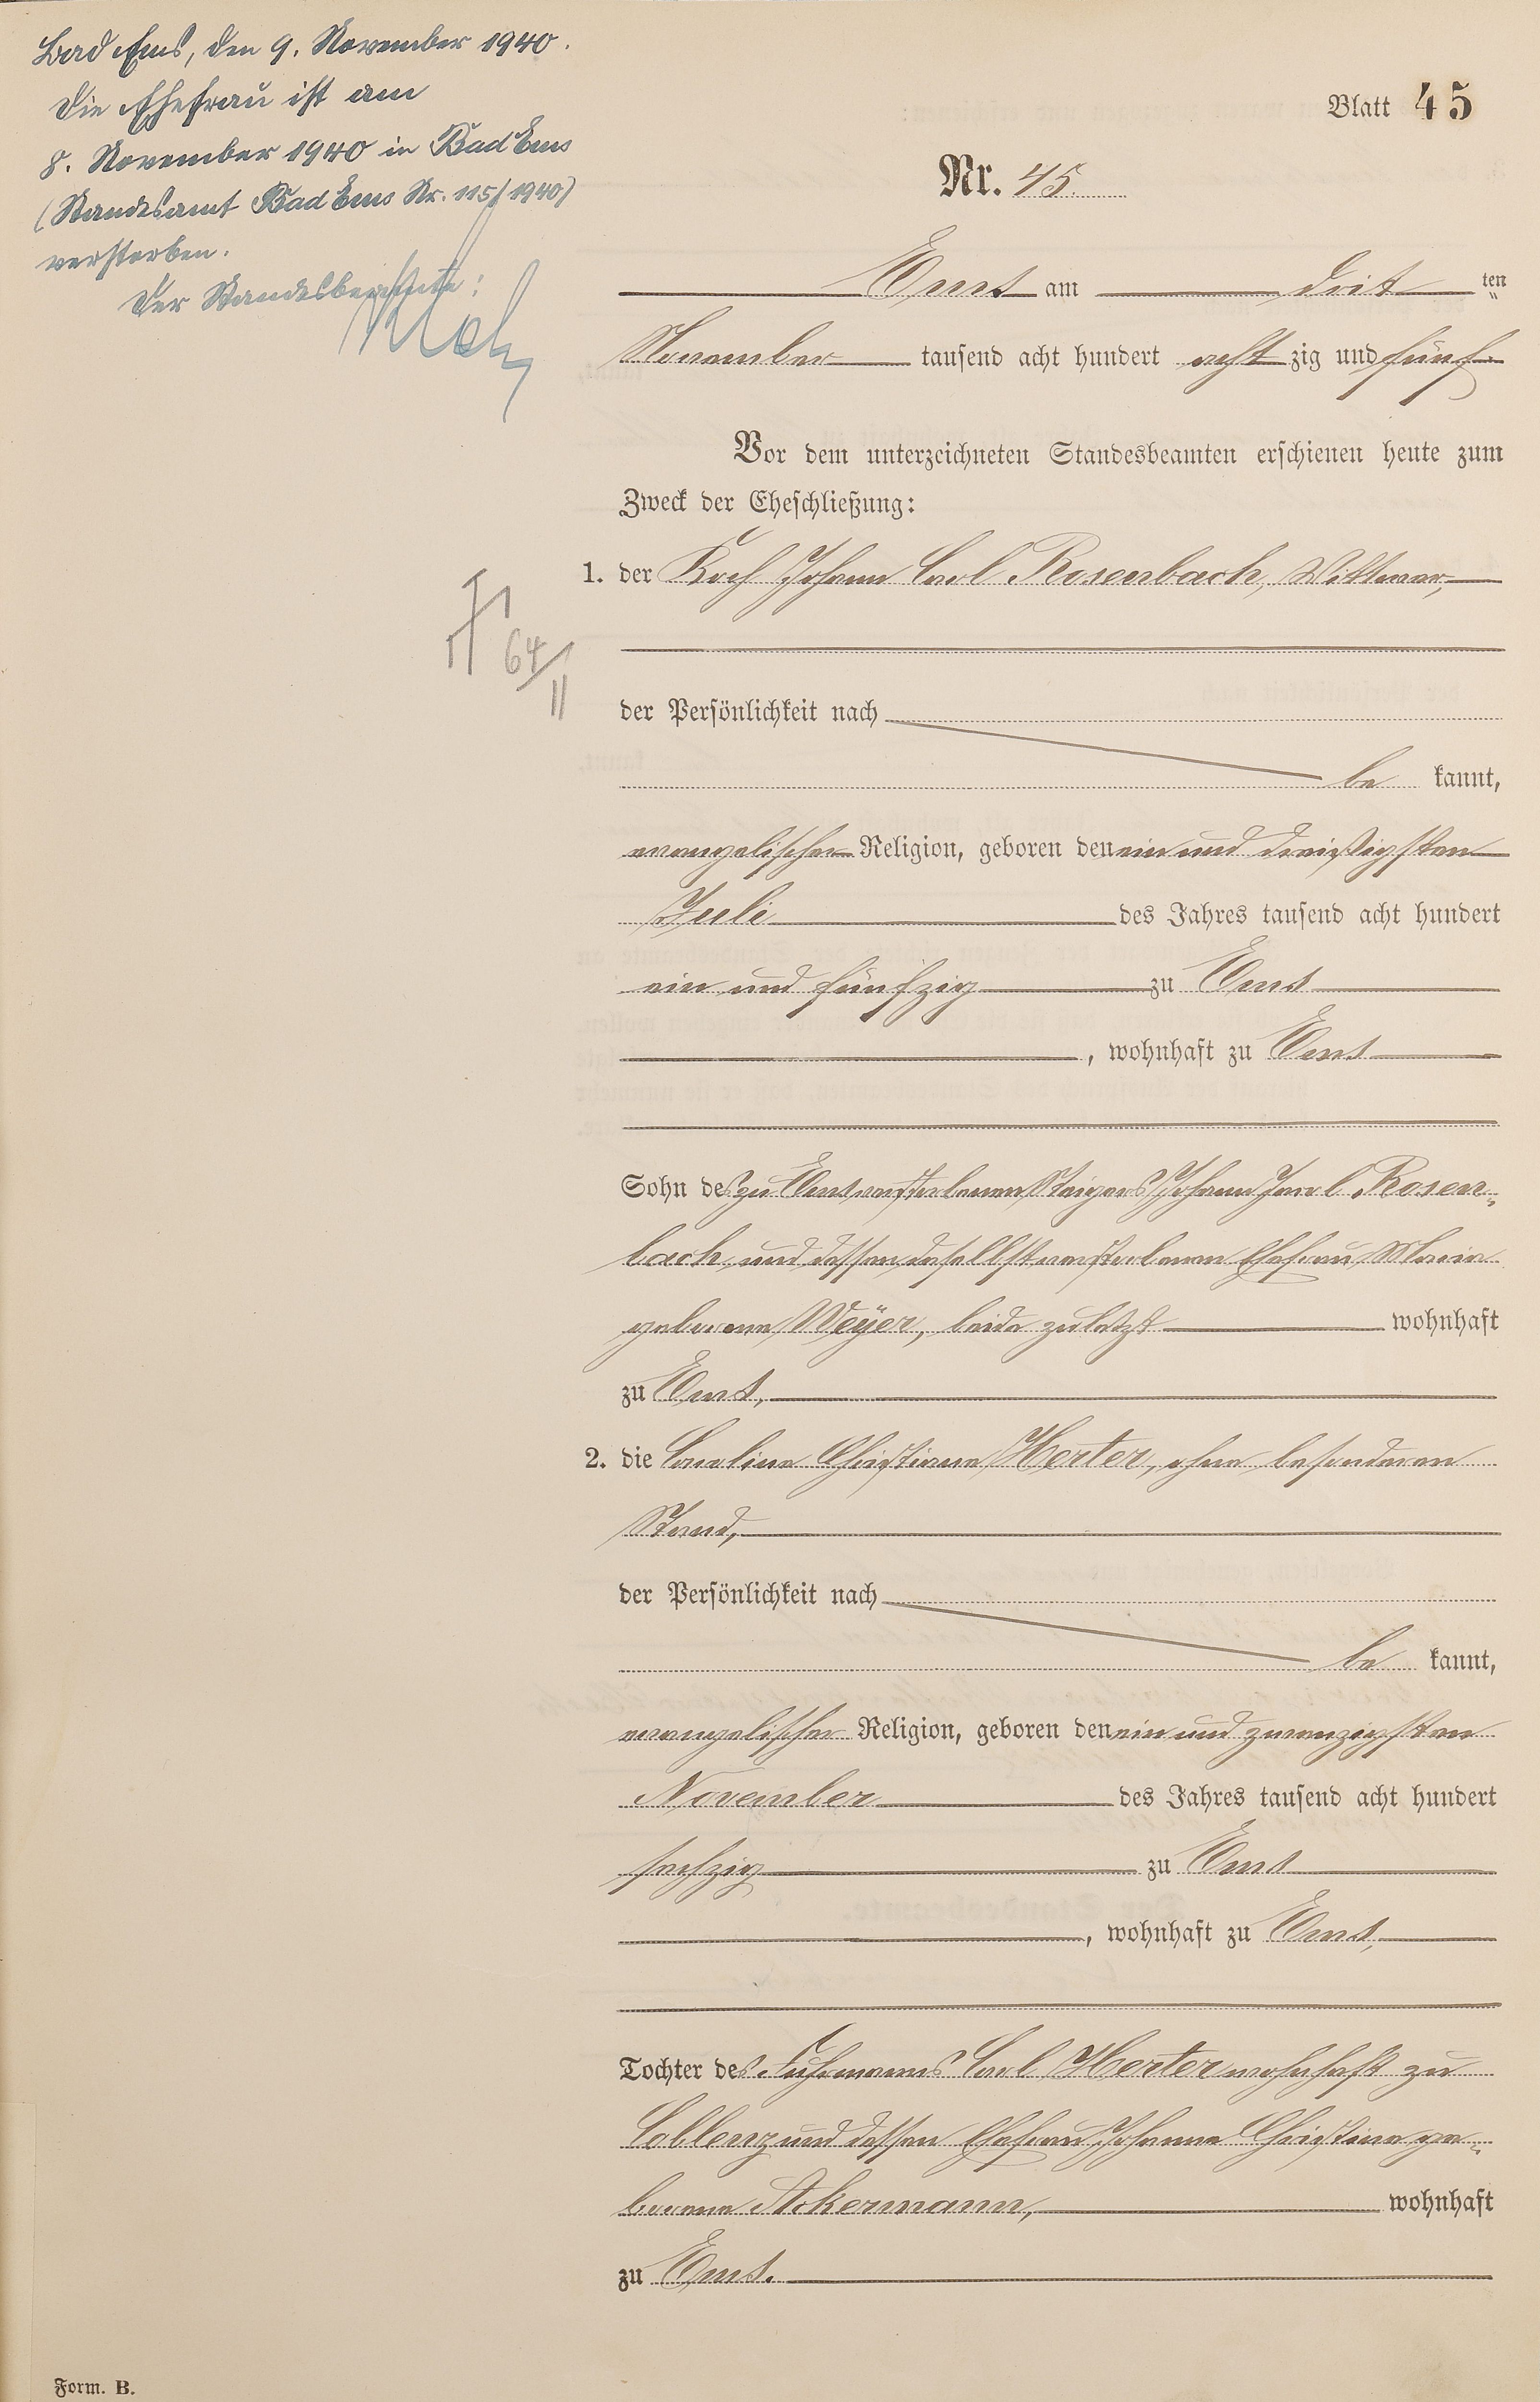 Bad Ems, den 9. November 1940.
Die Ehefrau ist am
8. November 1940 in Bad Ems
(Standesamt Bad Ems Nr. 115/1940)
verstorben.
Der Standesbeamte:
Blatt 45
Nr. 45.
Ems am dritten
November tausend acht hundert acht zig und fünf.
Vor dem unterzeichneten Standesbeamten erschienen heute zum
Zweck der Eheschließung:
1. der Koch Johann Carl Rosenbach, Wittwer,
64/II
der Persönlichkeit nach
be kannt,
evangelischer Religion, geboren den ein und dreißigsten
Juli des Jahres tausend acht hundert
ein und fünfzig zu Ems
, wohnhaft zu Ems
Sohn des zu Ems verstorbenen Steigers Johann Carl Rosen-
bach und dessen daselbst verstorbenen Ehefrau Maria
geborene Weÿer, beide zuletzt wohnhaft
zu Ems,
2. die Caroline Christiane Herter, ohne besonderen
Stand,
der Persönlichkeit nach
be kannt,
evangelischer Religion, geboren den ein und zwanzigsten
November des Jahres tausend acht hundert
sechzig zu Ems
, wohnhaft zu Ems,
Tochter des Fuhrmanns Carl Herter wohnhaft zu
Coblenz und dessen Ehefrau Johanna Christina ge-
borene Ackermann, wohnhaft
zu Ems.
Form. B.